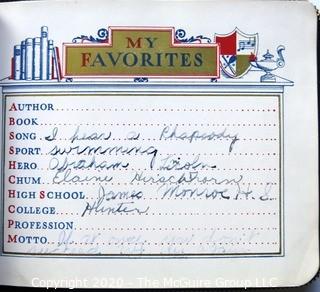 MY
FAVORITES
AUTHOR
BOOK
SONG I hear a Rhapsody
SPORT swimming
HERO Abraham Lincoln
CHUM Elaine Hirschhorn
HIGH SCHOOL James Monroe H.S.
COLLEGE Hunter
PROFESSION
MOTTO If at first you don't
Copyright 2020 - The McGuire Group